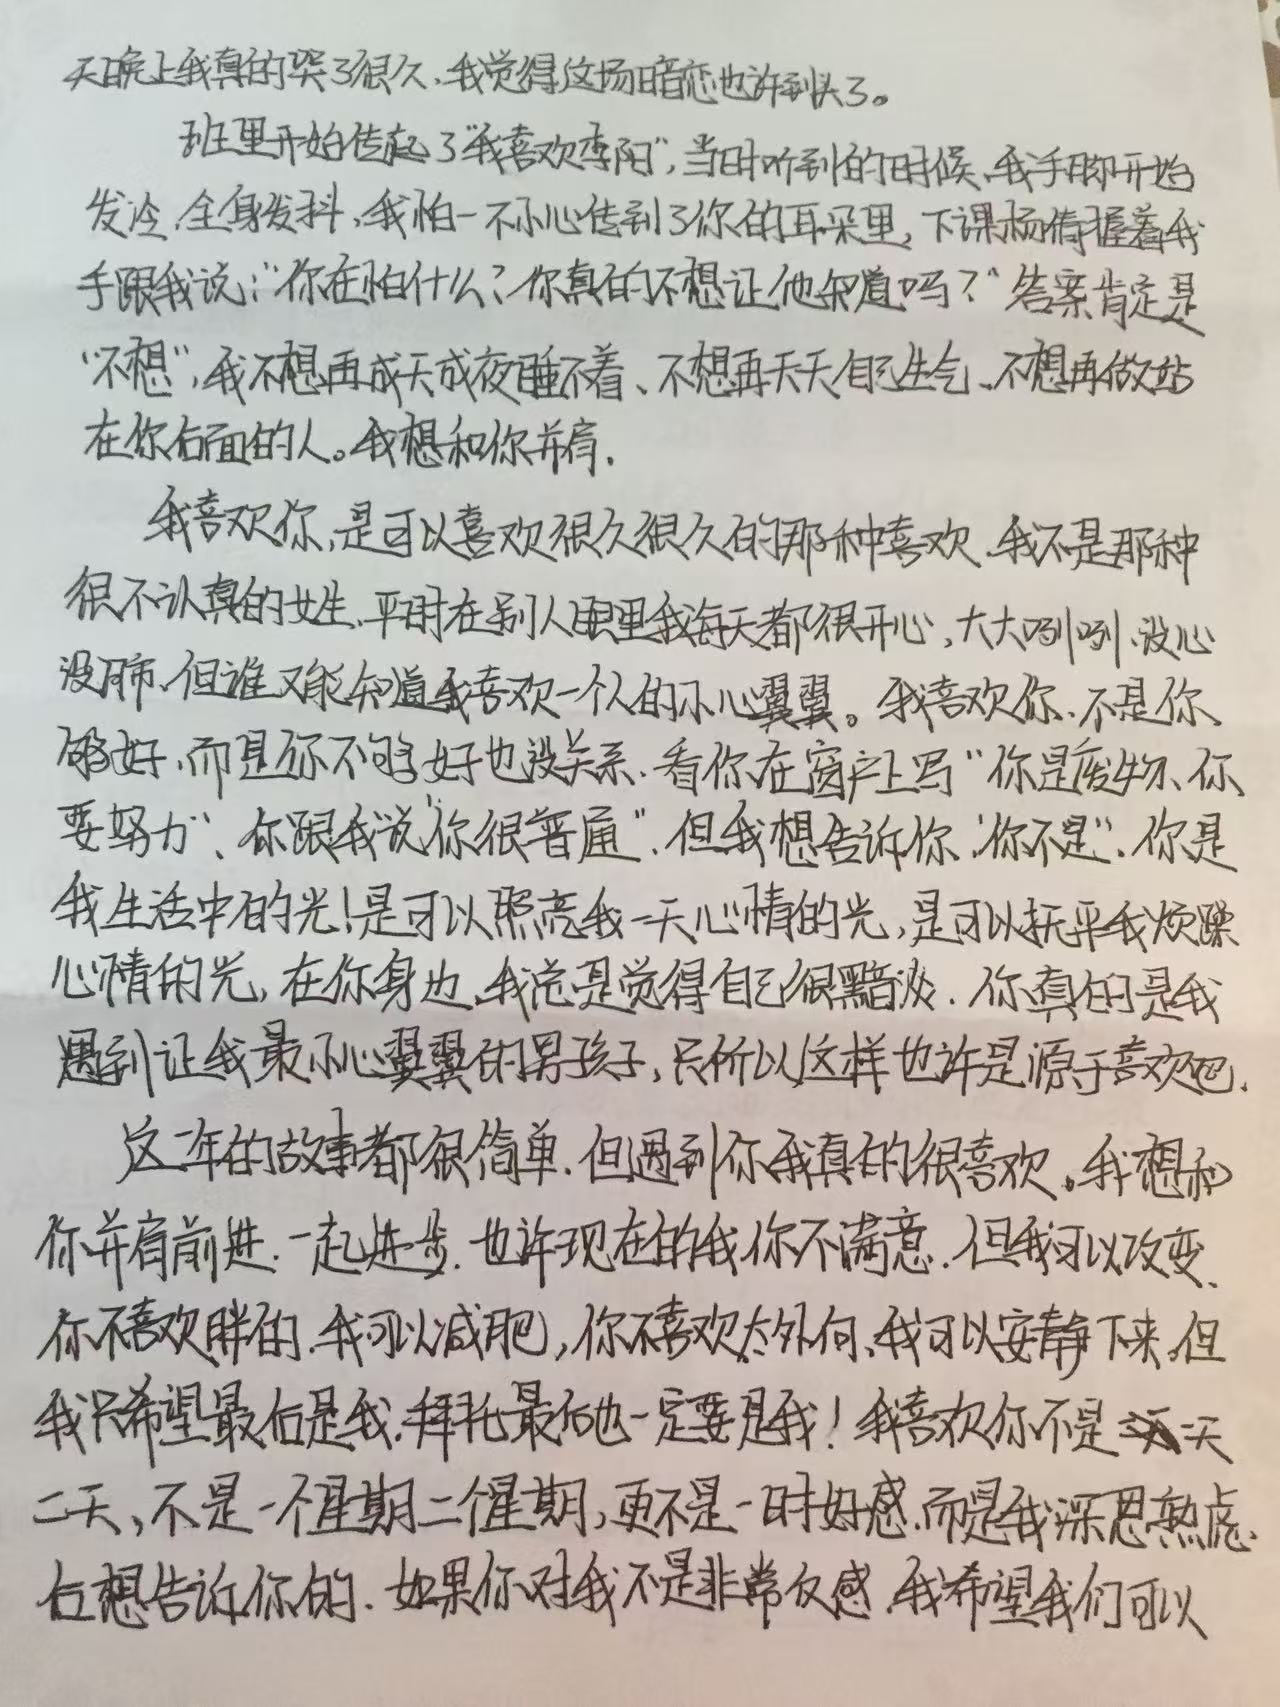 天晚上我真的哭了很久、我觉得这场暗恋也许到头了。
班里开始传起了“我喜欢李阳”,当时听到的时候、我手脚开始
发冷、全身发抖、我怕一不小心传到了你的耳朵里,下课杨倩握着我
手跟我说:“你在怕什么?你真的不想让他知道吗?”答案肯定是
“不想”,我不想再成天成夜睡不着、不想再天天自己生气、不想再做站
在你右面的人。我想和你并肩.
我喜欢你,是可以喜欢很久很久的那种喜欢、我不是那种
很不认真的女生、平时在别人眼里我每天都很开心,大大咧咧、没心
没肺、但谁又能知道我喜欢一个人的小心翼翼。我喜欢你、不是你
够好、而是你不够好也没关系、看你在窗户上写“你是废物、你
要努力”、你跟我说“你很普通”、但我想告诉你“你不是”、你是
我生活中的光!是可以照亮我一天心情的光,是可以抚平我烦躁
心情的光,在你身边、我总是觉得自己很黯淡.你真的是我
遇到让我最小心翼翼的男孩子,只所以这样也许是源于喜欢吧.
这二年的故事都很简单.但遇到你我真的很喜欢。我想和
你并肩前进.一起进步.也许现在的我你不满意.但我可以改变、
你不喜欢胖的.我可以减肥,你不喜欢太外向、我可以安静下来.但
我只希望最后是我.拜托最后也一定要是我!我喜欢你不是一天
二天、不是一个星期二个星期,更不是一时好感.而是我深思熟虑.
后想告诉你的.如果你对我不是非常反感.我希望我们可以